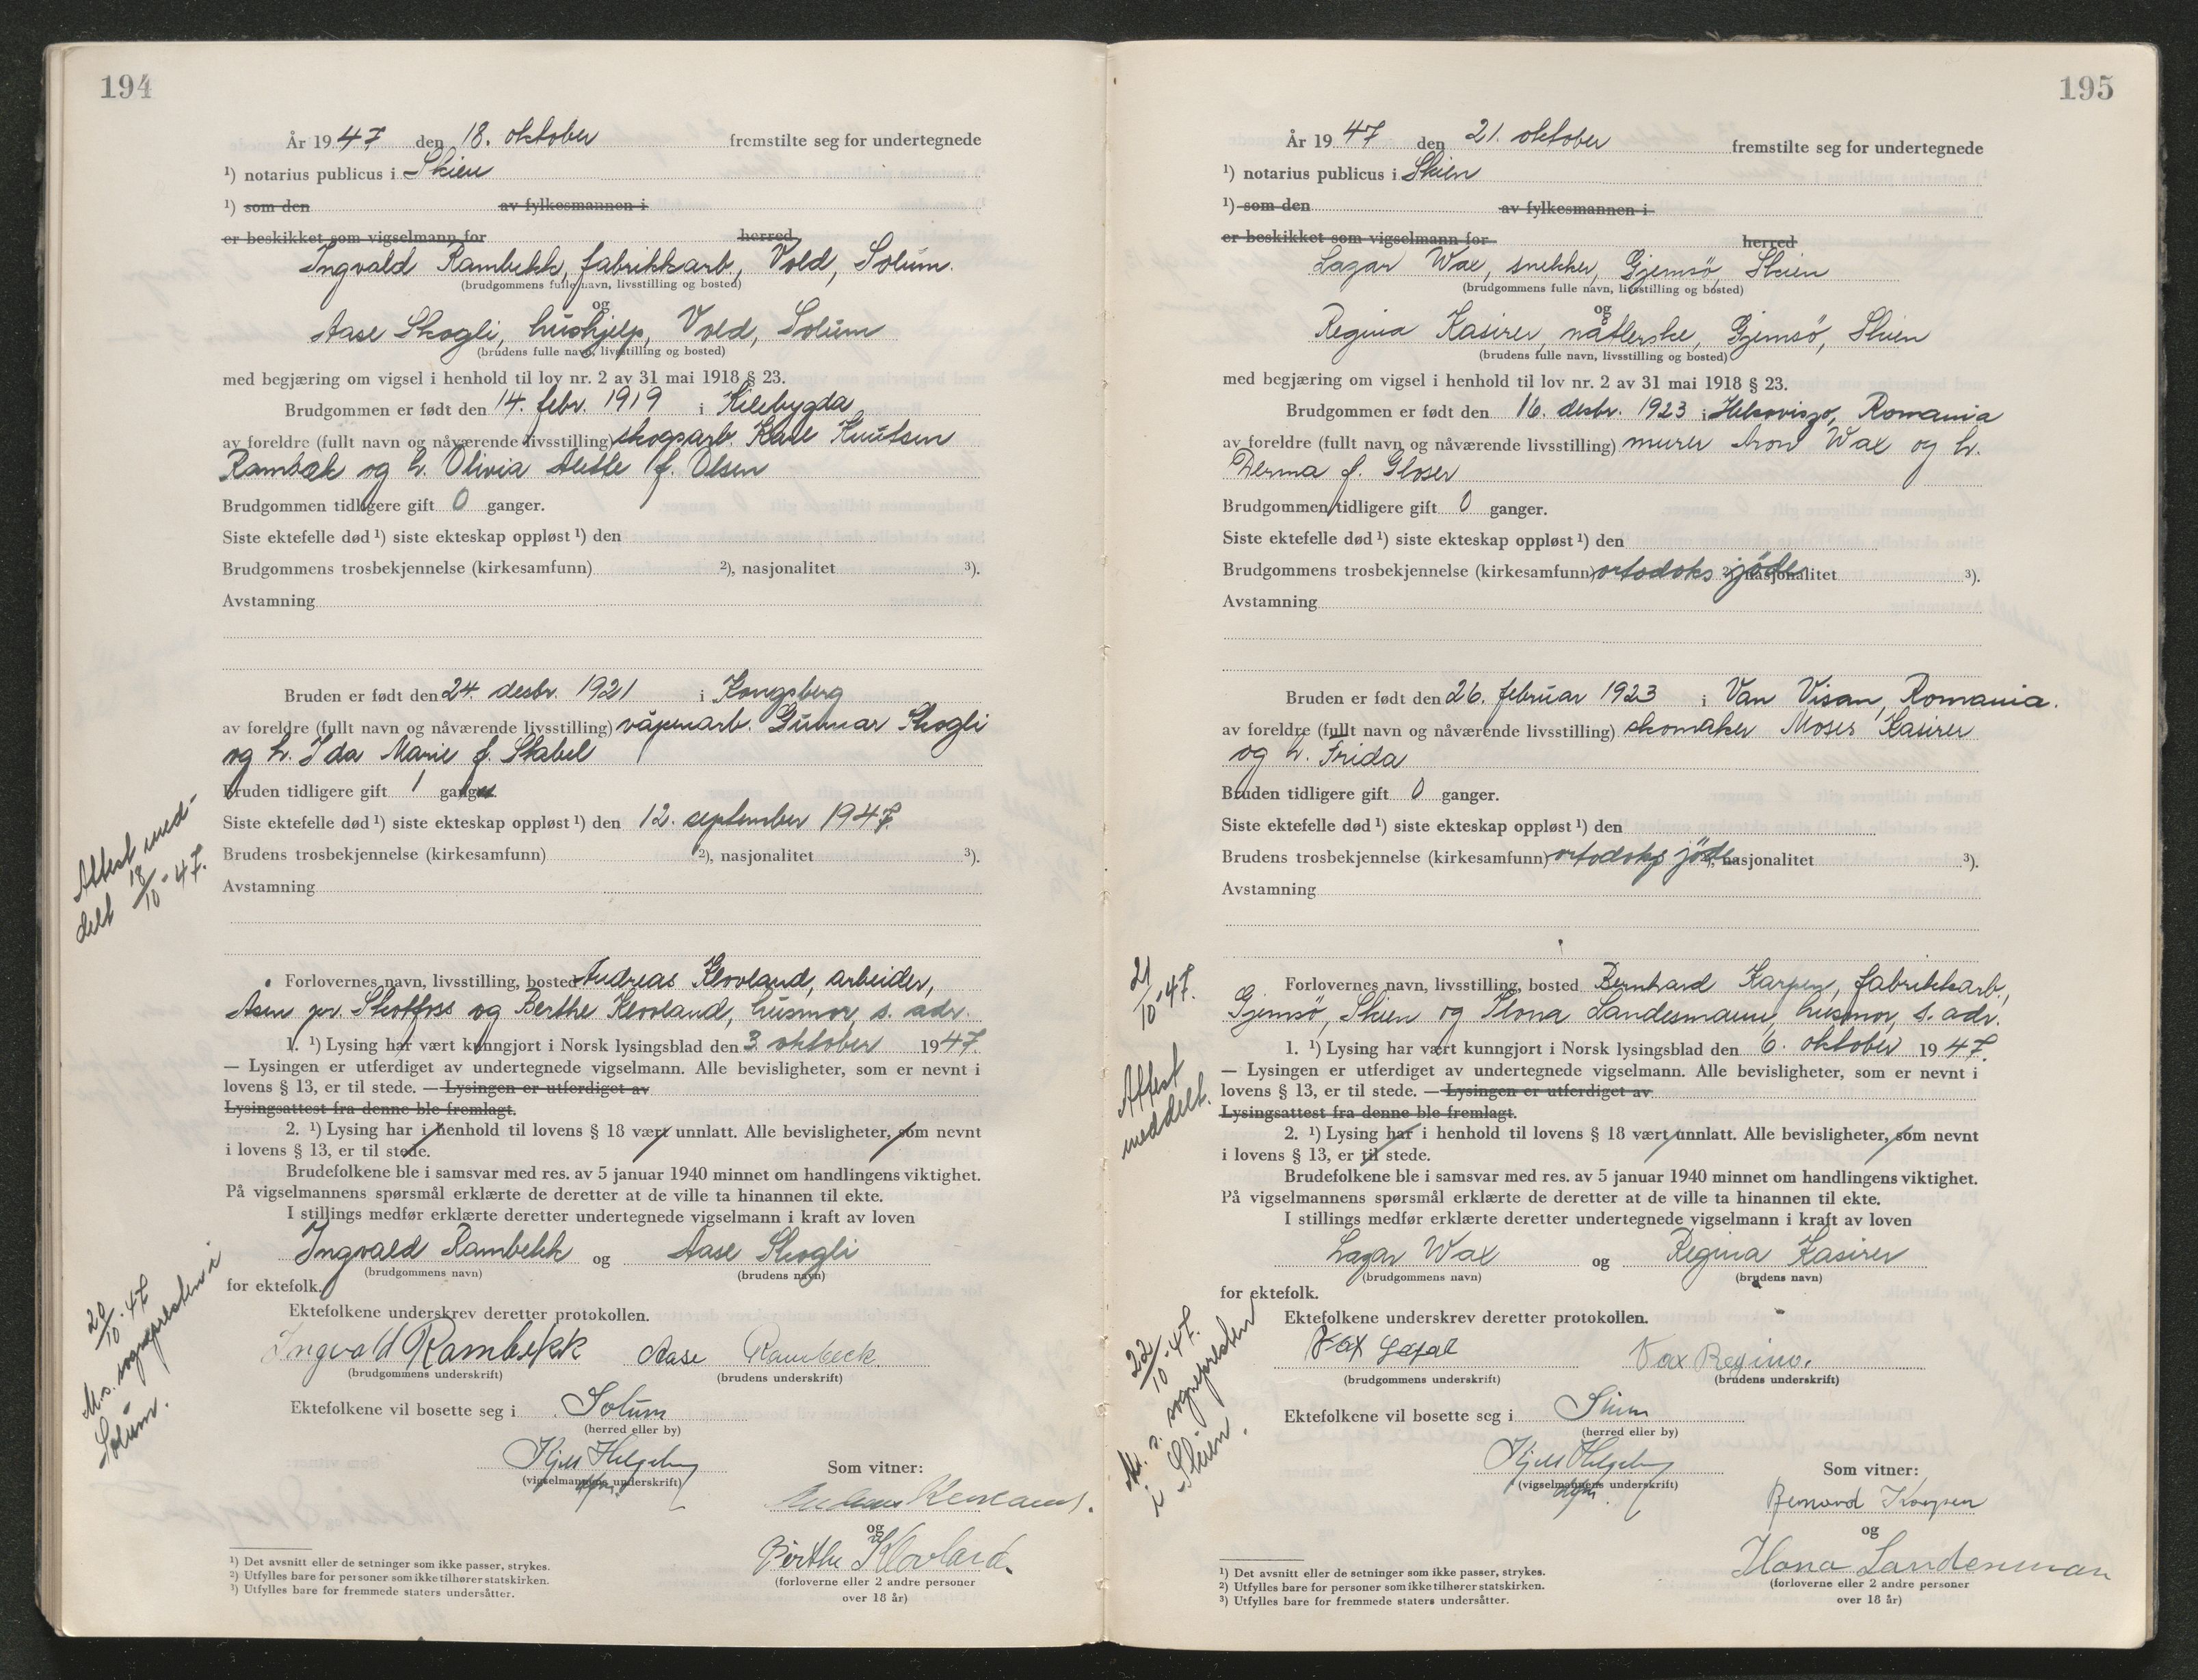 194
År 1947 den 18. oktober fremstilte seg for undertegnede
¹) notarius publicus i Skien
¹) som den av fylkesmannen i
er beskikket som vigselmann for herred
Ingvald Rambekk, fabrikkarb., Vold, Solum.
(brudgommens fulle navn, livsstilling og bosted)
og
Aase Skogli, hushjelp, Vold, Solum
(brudens fulle navn, livsstilling og bosted)
med begjæring om vigsel i henhold til lov nr. 2 av 31 mai 1918 § 23.
Brudgommen er født den 14. febr. 1919 i Kilebygda
av foreldre (fullt navn og nåværende livsstilling) skogsarb. Karl Knutsen
Rambæk og h. Olivia Alette f. Olsen
Brudgommen tidligere gift 0 ganger.
Siste ektefelle død ¹) siste ekteskap oppløst ¹) den
Brudgommens trosbekjennelse (kirkesamfunn) ²), nasjonalitet ³).
Avstamning
Bruden er født den 24. desbr. 1921 i Kongsberg
av foreldre (fullt navn og nåværende livsstilling) våpenarb. Gunnar Skogli
og h. Ida Marie f. Stabel
Bruden tidligere gift 1 gang
Siste ektefelle død ¹) siste ekteskap oppløst ¹) den 12. september 1947.
Brudens trosbekjennelse (kirkesamfunn) ²), nasjonalitet ³).
Avstamning
Attest med-
delt 18/10-47.
Forlovernes navn, livsstilling, bosted Andreas Klovland, arbeider,
Åsen pr. Skotfoss og Berthe Klovland, husmor, s. adr.
1. ¹) Lysing har vært kunngjort i Norsk lysingsblad den 3. oktober 1947.
— Lysingen er utferdiget av undertegnede vigselmann. Alle bevisligheter, som er nevnt i
lovens § 13, er til stede. — Lysingen er utferdiget av
Lysingsattest fra denne ble fremlagt.
2. ¹) Lysing har i henhold til lovens § 18 vært unnlatt. Alle bevisligheter, som nevnt
i lovens § 13, er til stede.
Brudefolkene ble i samsvar med res. av 5 januar 1940 minnet om handlingens viktighet.
På vigselmannens spørsmål erklærte de deretter at de ville ta hinannen til ekte.
I stillings medfør erklærte deretter undertegnede vigselmann i kraft av loven
Ingvald Rambekk og Aase Skogli
(brudgommens navn) (brudens navn)
for ektefolk.
Ektefolkene underskrev deretter protokollen.
Ingvald Rambekk Aase Rambeck
(brudgommens underskrift) (brudens underskrift)
20/10-47
M. s. sognepresten i
Solum.
Ektefolkene vil bosette seg i Solum
(herred eller by)
Kjell Helgeby
(vigselmannens underskrift)
Som vitner:
Andreas Klovland.
og
Berthe Klovland.
(forloverne eller 2 andre personer
over 18 år)
¹) Det avsnitt eller de setninger som ikke passer, strykes.
²) Utfylles bare for personer som ikke tilhører statskirken.
³) Utfylles bare for fremmede staters undersåtter.
195
År 1947 den 21. oktober fremstilte seg for undertegnede
¹) notarius publicus i Skien
¹) som den av fylkesmannen i
er beskikket som vigselmann for herred
Lazar Wax, snekker, Gjemsö, Skien
(brudgommens fulle navn, livsstilling og bosted)
og
Regina Kasirer, nåtlerske, Gjemsö, Skien
(brudens fulle navn, livsstilling og bosted)
med begjæring om vigsel i henhold til lov nr. 2 av 31 mai 1918 § 23.
Brudgommen er født den 16. desbr. 1923 i Romania
av foreldre (fullt navn og nåværende livsstilling) murer Aron Wax og h.
Derma f. Gloser
Brudgommen tidligere gift 0 ganger.
Siste ektefelle død ¹) siste ekteskap oppløst ¹) den
Brudgommens trosbekjennelse (kirkesamfunn) ortodoks jöde ²), nasjonalitet ³).
Avstamning
Bruden er født den 26. februar 1923 i Van Visan, Romania.
av foreldre (fullt navn og nåværende livsstilling) skomaker Moses Kasirer
og h. Frida
Bruden tidligere gift 0 ganger.
Siste ektefelle død ¹) siste ekteskap oppløst ¹) den
Brudens trosbekjennelse (kirkesamfunn) ortodoks jöde ²), nasjonalitet ³).
Avstamning
21/10-47.
Attest
meddelt.
Forlovernes navn, livsstilling, bosted Bernhard Karpen, fabrikkarb.,
Gjemsö, Skien og Ilona Landesmann, husmor, s. adr.
1. ¹) Lysing har vært kunngjort i Norsk lysingsblad den 6. oktober 1947.
— Lysingen er utferdiget av undertegnede vigselmann. Alle bevisligheter, som er nevnt i
lovens § 13, er til stede. — Lysingen er utferdiget av
Lysingsattest fra denne ble fremlagt.
2. ¹) Lysing har i henhold til lovens § 18 vært unnlatt. Alle bevisligheter, som nevnt
i lovens § 13, er til stede.
Brudefolkene ble i samsvar med res. av 5 januar 1940 minnet om handlingens viktighet.
På vigselmannens spørsmål erklærte de deretter at de ville ta hinannen til ekte.
I stillings medfør erklærte deretter undertegnede vigselmann i kraft av loven
Lazar Wax og Regina Kasirer
(brudgommens navn) (brudens navn)
for ektefolk.
Ektefolkene underskrev deretter protokollen.
Vax Vax Regina.
(brudgommens underskrift) (brudens underskrift)
22/10-47.
M. s. sognepresten
i Skien.
Ektefolkene vil bosette seg i Skien
(herred eller by)
Kjell Helgeby
(vigselmannens underskrift)
Som vitner:
Bernard Karpen
og
Ilona Landesman
(forloverne eller 2 andre personer
over 18 år)
¹) Det avsnitt eller de setninger som ikke passer, strykes.
²) Utfylles bare for personer som ikke tilhører statskirken.
³) Utfylles bare for fremmede staters undersåtter.